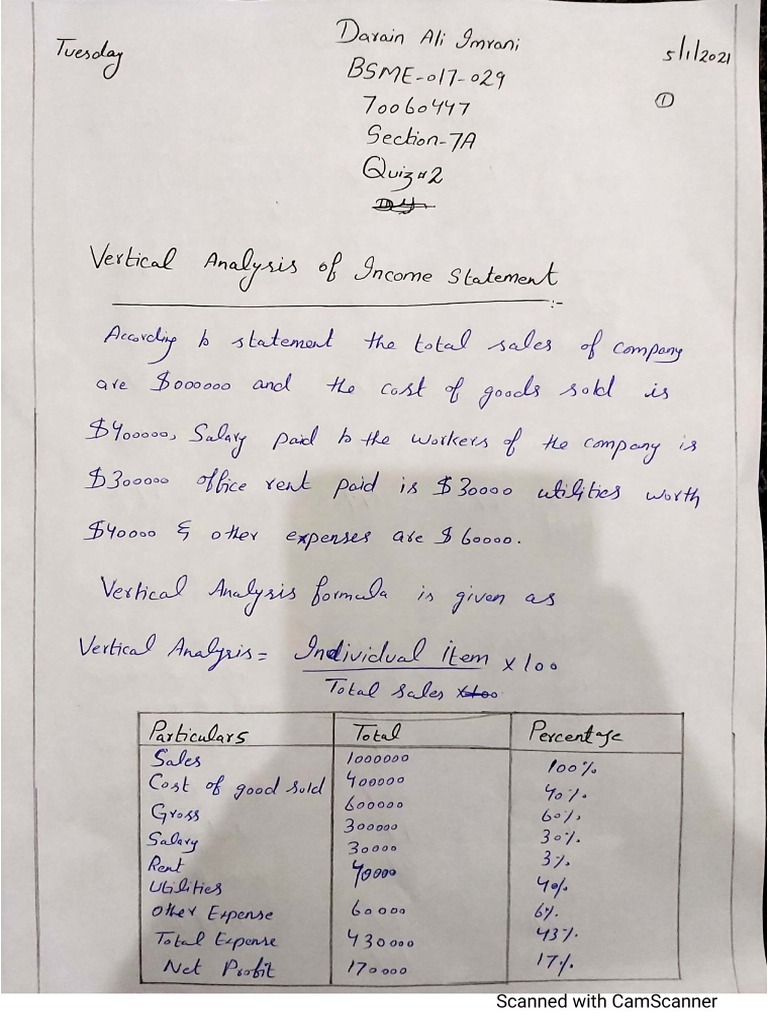 Tuesday
Darain Ali Imrani
5/1/2021
BSME-017-029
1
70060447
Section-7A
Quiz#2
Vertical Analysis of Income Statement
According to statement the total sales of company
are $000000 and the cost of goods sold is
$400000, Salary paid to the workers of the company is
$300000 office rent paid is $30000 utilities worth
$40000 & other expenses are $60000.
Vertical Analysis formula is given as
Vertical Analysis = Individual item × 100
Total sales
Particulars Total Percentage
Sales 1000000 100%
Cost of good sold 400000 40%
Gross 600000 60%
Salary 300000 30%
Rent 30000 3%
Utilities 40000 4%
Other Expense 60000 6%
Total Expense 430000 43%
Net Profit 170000 17%
Scanned with CamScanner